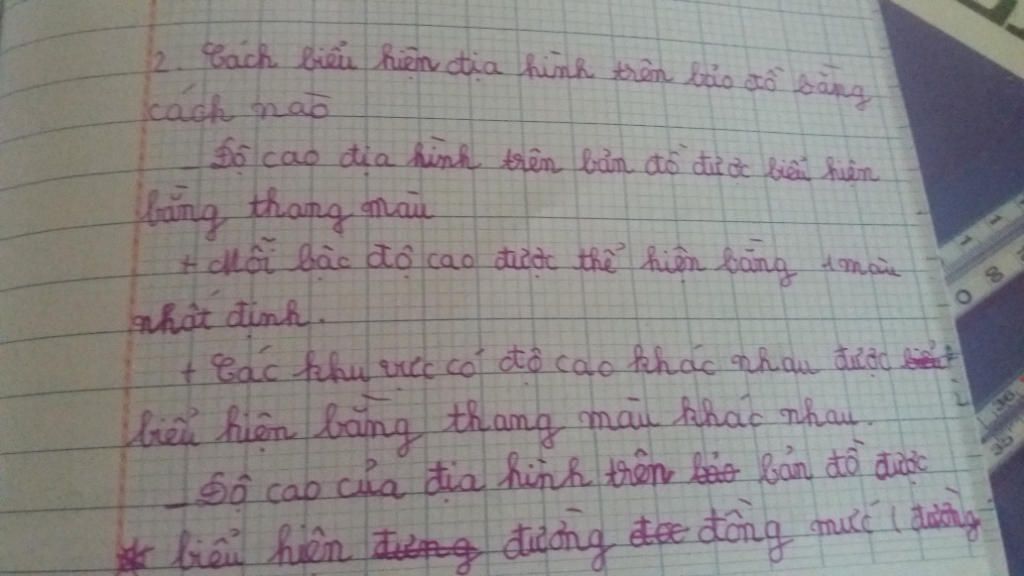 2. Cách biểu hiện địa hình trên bảo đồ bằng
cách nào
_ Độ cao địa hình trên bản đồ được biểu hiện
bằng thang màu
+ Mỗi bậc độ cao được thể hiện bằng 1 màu
nhất định.
+ Các khu vực có độ cao khác nhau được
biểu hiện bằng thang màu khác nhau.
_ Độ cao của địa hình trên bảo bản đồ được
biểu hiện đường đường đồng mức (đường
1 1
0 8
30
30